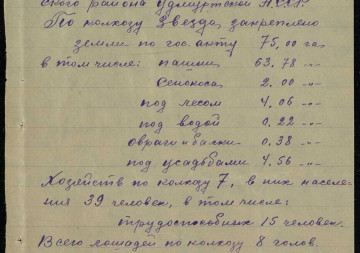 ского района Удмуртской АССР.
По колхозу Звезда, закреплено
земли по гос. акту 75,00 га
в том числе: пашни 63.78 -"-
сенокоса 2.00 -"-
под лесом 4.06 -"-
под водой 0.22 -"-
овраги и балки 0.38 -"-
под усадьбами 4.56 -"-
Хозяйств по колхозу 7, в них населе-
ния 39 человек, в том числе:
трудоспособных 15 человек.
Всего лошадей по колхозу 8 голов.